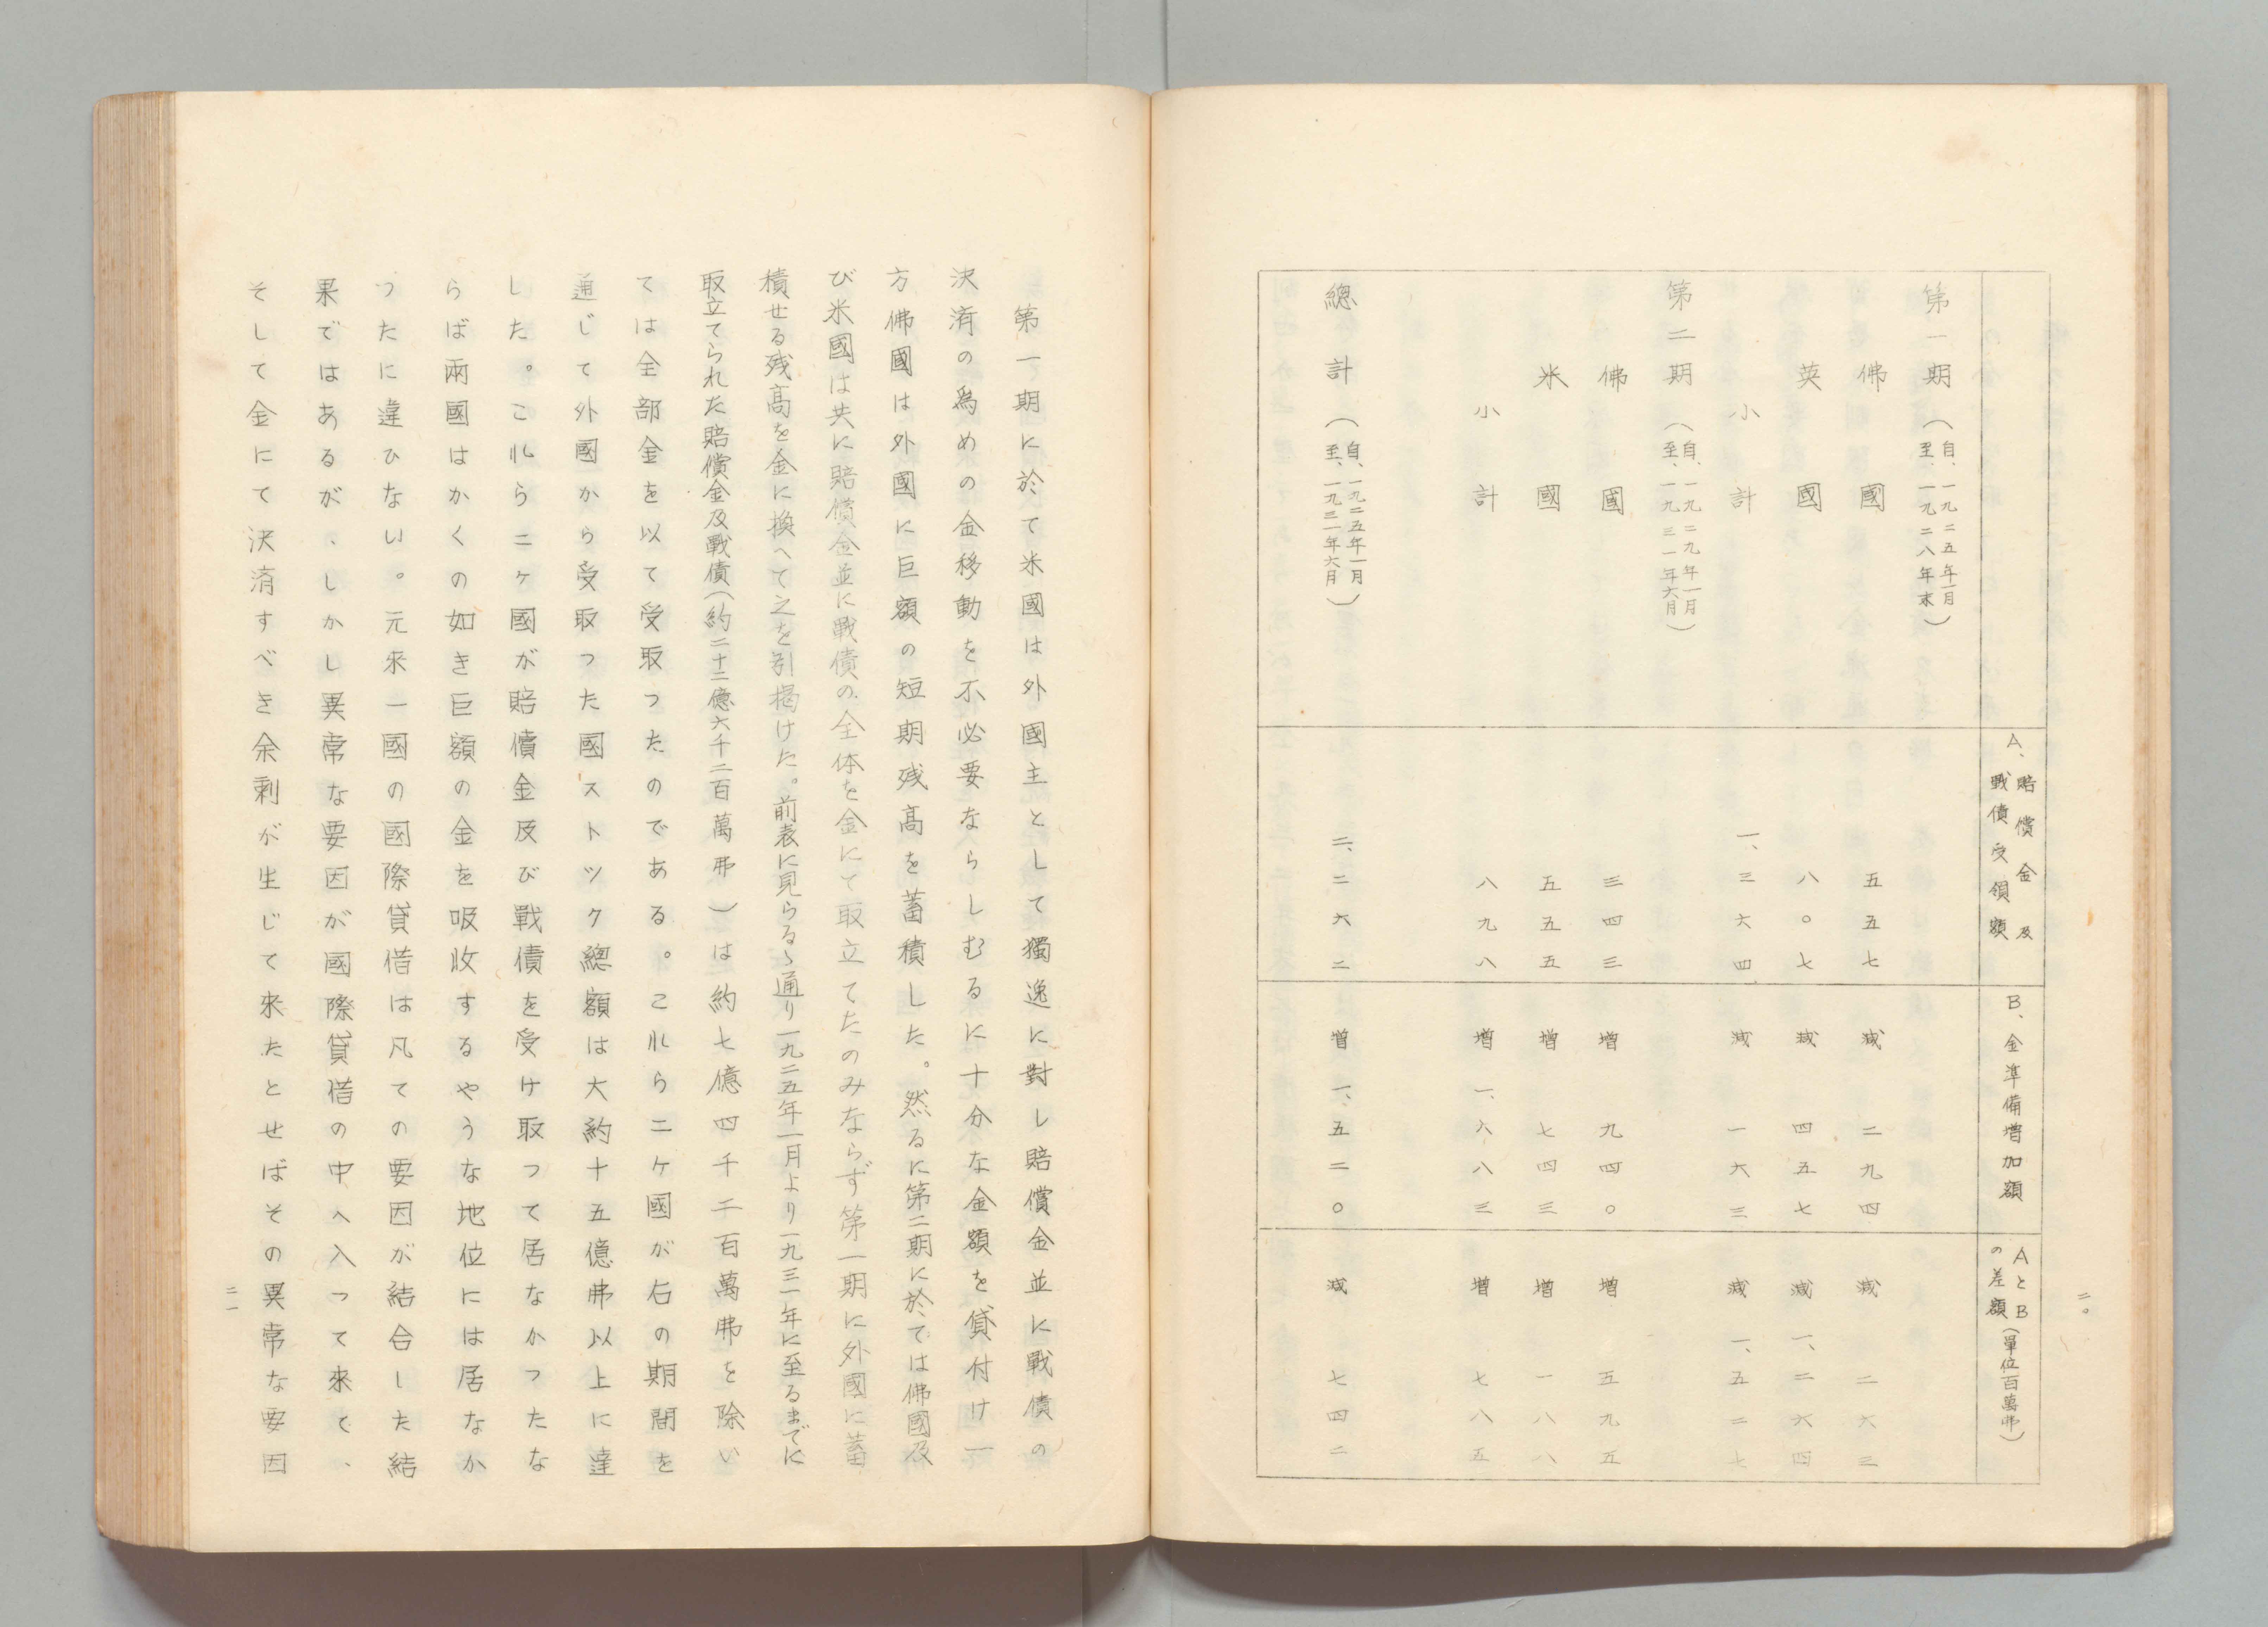 二〇
A、賠償金及
戰債受領額
B、金準備増加額
AとB
の差額（單位百萬弗）
第一期（自、一九二五年一月
至、一九二八年末）
佛國　五五七　減　二九四　減　二六三
英國　八〇七　減　四五七　減　一、二六四
小計　一、三六四　減　一六三　減　一、五二七
第二期（自、一九二九年一月
至、一九三一年六月）
佛國　三四三　増　九四〇　増　五九五
米國　五五五　増　七四三　増　一八八
小計　八九八　増　一、六八三　増　七八五
總計（自、一九二五年一月
至、一九三一年六月）　二、二六二　増　一、五二〇　減　七四二
第一期に於て米國は外國主として獨逸に對し賠償金並に戰債の
決済の為めの金移動を不必要ならしむるに十分な金額を貸付け一
方佛國は外國に巨額の短期残高を蓄積した。然るに第二期に於ては佛國及
び米國は共に賠償金並に戰債の全体を金にて取立てたのみならず第一期に外國に蓄
積せる残高を金に換へて之を引揚けた。前表に見らるゝ通り一九二五年一月より一九三一年に至るまでに
取立てられた賠償金及戰債（約二十二億六千二百萬弗）は約七億四千二百萬弗を除い
ては全部金を以て受取つたのである。これら二ケ國が右の期間を
通じて外國から受取つた國ストツク總額は大約十五億弗以上に達
した。これら二ケ國が賠償金及び戰債を受け取つて居なかつたな
らば兩國はかくの如き巨額の金を吸收するやうな地位には居なか
つたに違ひない。元来一國の國際貸借は凡ての要因が結合した結
果ではあるが、しかし異常な要因が國際貸借の中へ入つて来て、
そして金にて決済すべき余剰が生じて来たとせばその異常な要因
二一